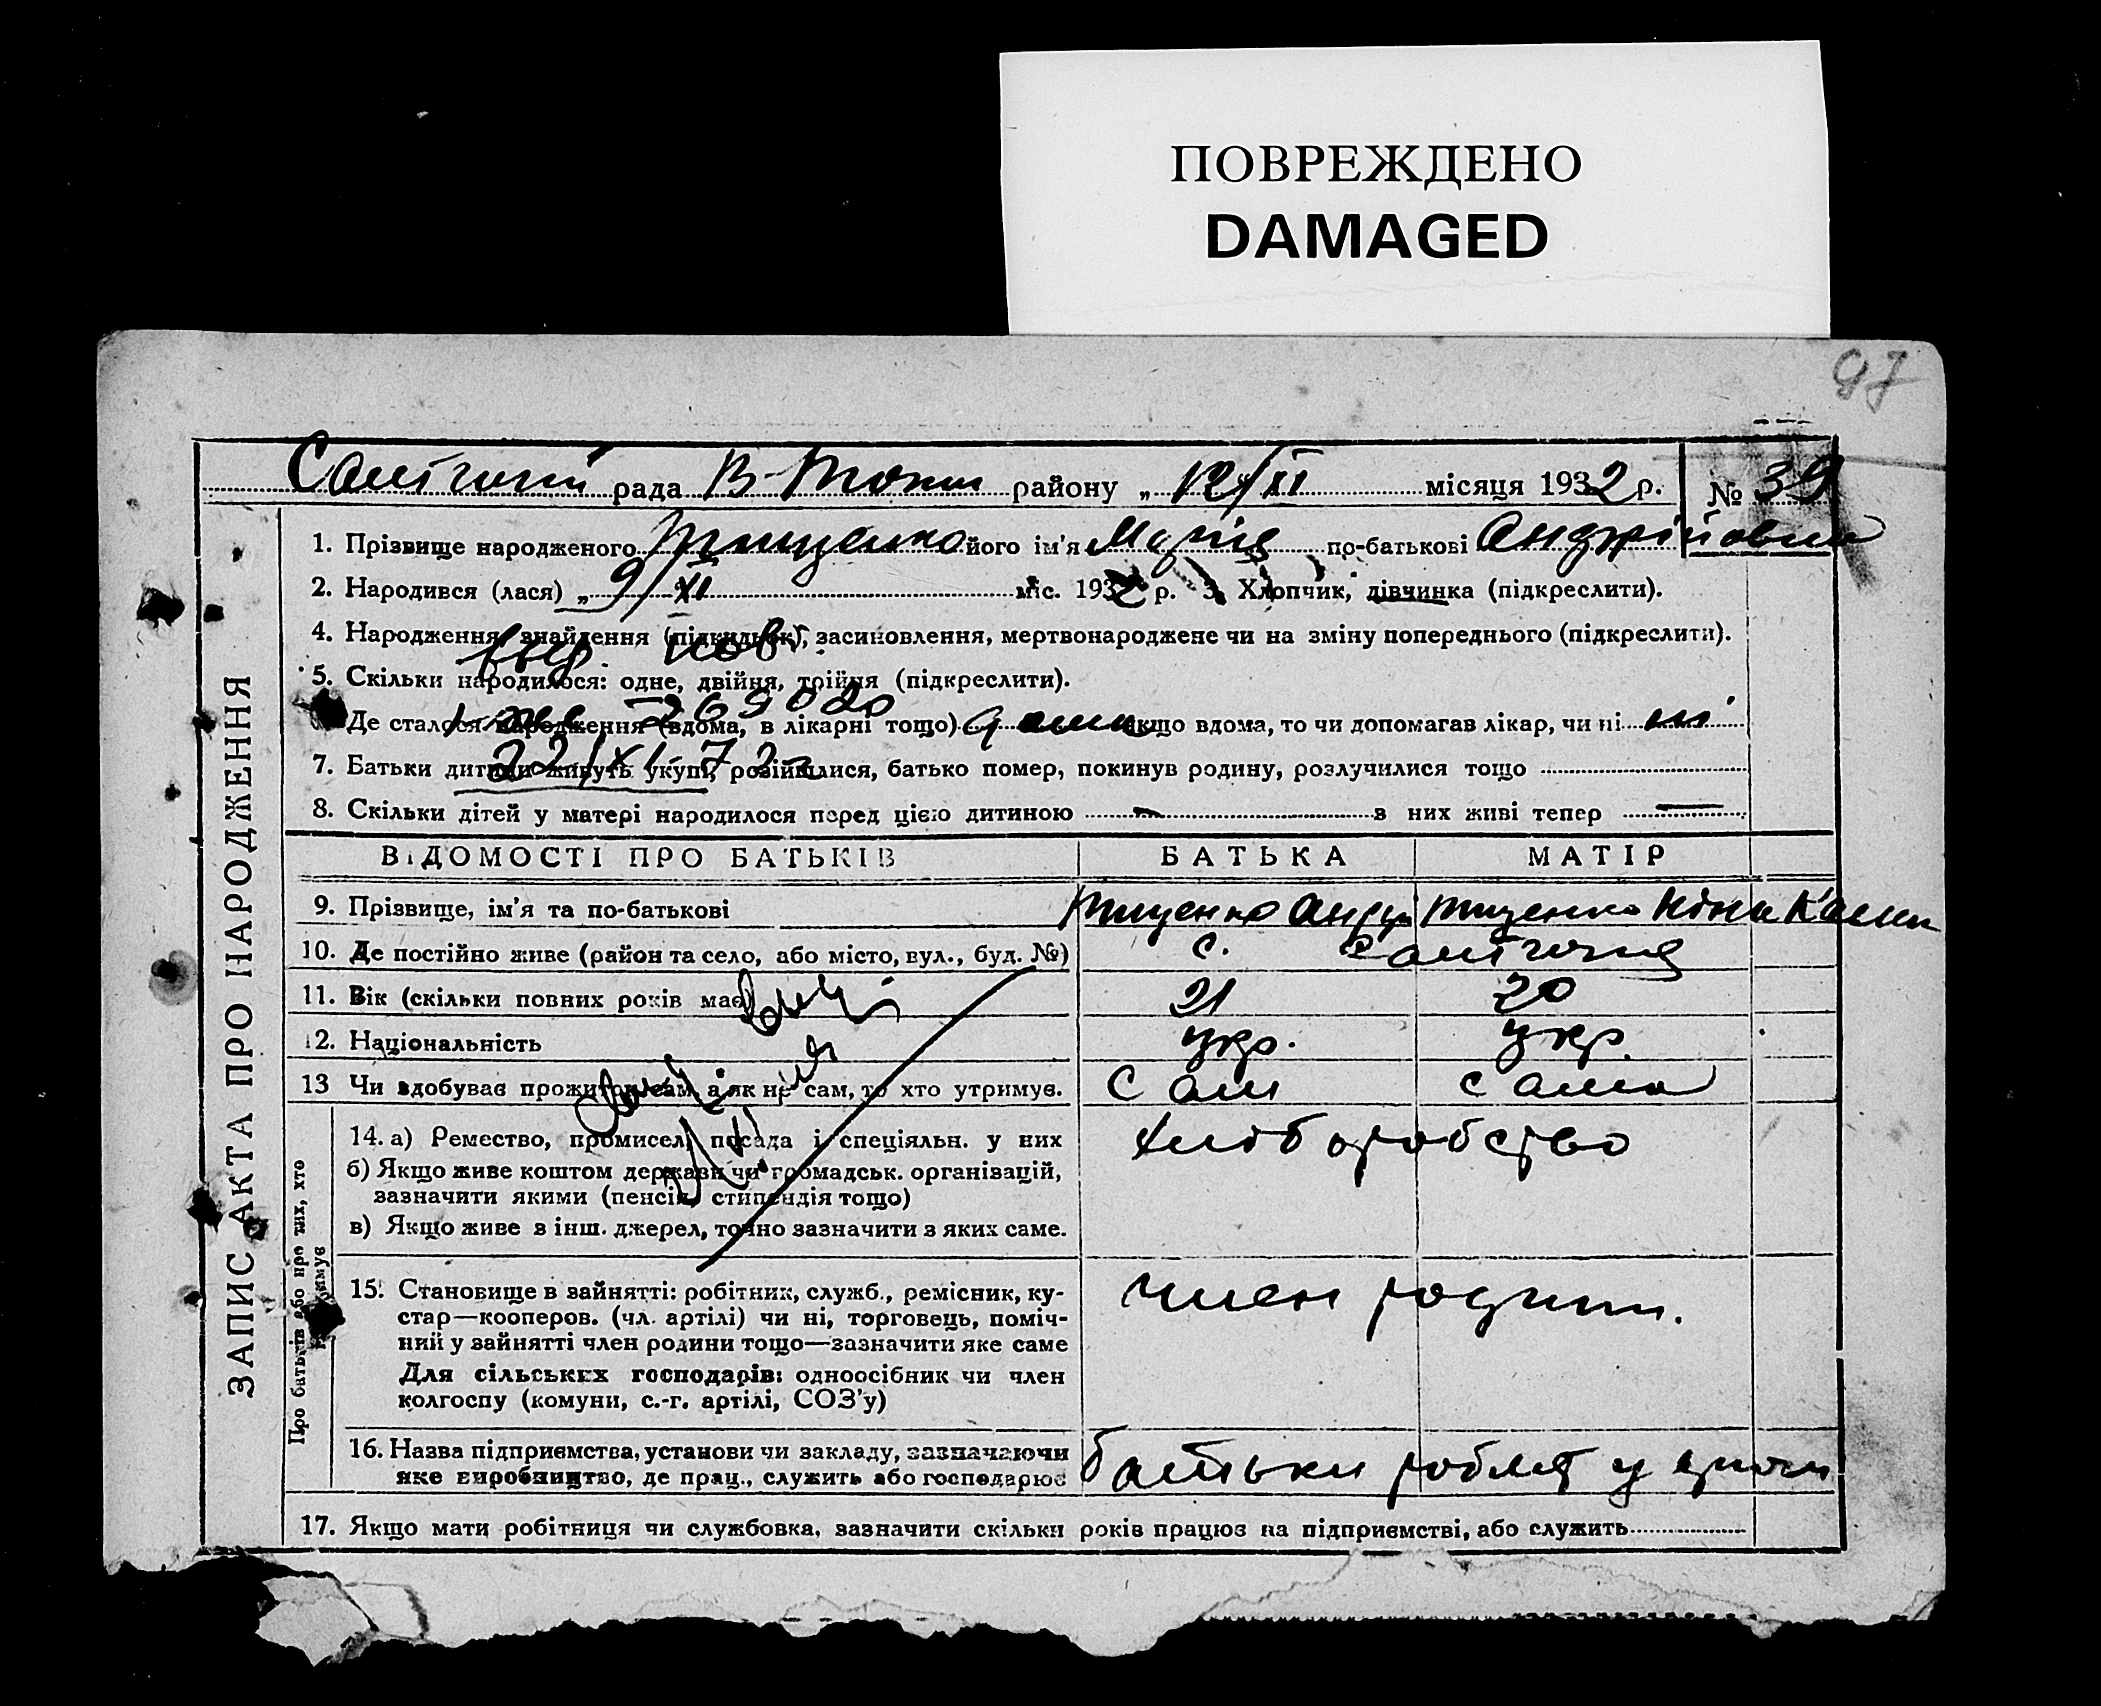 ПОВРЕЖДЕНО
DAMAGED
97
рада В-Токм району „ 12/XI місяця 1932 р. № 39
1. Прізвище народженого Тищенко його ім'я Марія по-батькові Андрійовна
2. Народився (лася) „ 9/XI міс. 1932 р. 3. Хлопчик, дівчинка (підкреслити).
4. Народження, знайдення (підкидьок), засиновлення, мертвонароджене чи на зміну попереднього (підкреслити).
выд. пов.
5. Скільки народилося: одне, двійня, трійня (підкреслити).
269020
Де сталося народження (вдома, в лікарні тощо) дома якщо вдома, то чи допомагав лікар, чи ні ні
22/XI-72
7. Батьки дитини живуть укупі, розійшлися, батько помер, покинув родину, розлучилися тощо
8. Скільки дітей у матері народилося перед цією дитиною — з них живі тепер —
ЗАПИС АКТА ПРО НАРОДЖЕННЯ
ВІДОМОСТІ ПРО БАТЬКІВ БАТЬКА МАТІР
9. Прізвище, ім'я та по-батькові Тищенко Андр Тищенко Ніна
10. Де постійно живе (район та село, або місто, вул., буд. №) с.
11. Вік (скільки повних років має) 21 20
12. Національність укр. укр.
13 Чи здобуває прожиток сам, а як не сам, то хто утримує. сам сама
Про батьків або про тих, хто утримує
14. а) Ремество, промисел, посада і спеціяльн. у них хліборобство
б) Якщо живе коштом держави чи громадськ. організацій,
зазначити якими (пенсія, стипендія тощо)
в) Якщо живе з інш. джерел, точно зазначити з яких саме.
15. Становище в зайнятті: робітник, служб., ремісник, ку-
стар—кооперов. (чл. артілі) чи ні, торговець, поміч-
ний у зайнятті член родини тощо—зазначити яке саме
член родини.
Для сільських господарів: одноосібник чи член
колгоспу (комуни, с.-г. артілі, СОЗ'у)
16. Назва підприємства, установи чи закладу, зазначаючи
яке виробництво, де прац., служить або господарює
батьки роблят у
17. Якщо мати робітниця чи службовка, зазначити скільки років працює на підприємстві, або служить